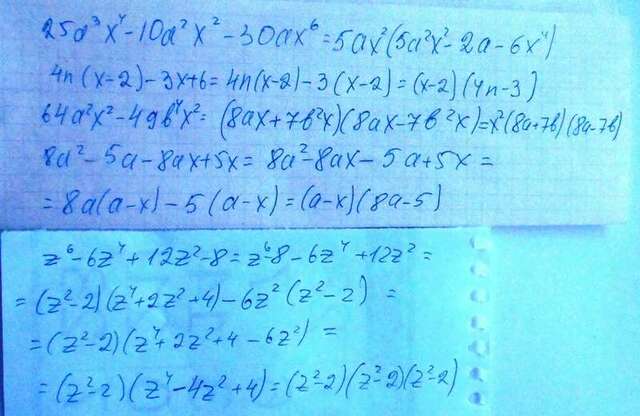 25a³x⁴-10a²x²-30ax⁶=5ax²(5a²x²-2a-6x⁴)
4n(x-2)-3x+6=4n(x-2)-3(x-2)=(x-2)(4n-3)
64a²x²-49b⁴x²=(8ax+7b²x)(8ax-7b²x)=x²(8a+7b)(8a-7b)
8a²-5a-8ax+5x=8a²-8ax-5a+5x=
=8a(a-x)-5(a-x)=(a-x)(8a-5)
z⁶-6z⁴+12z²-8=z⁶-8-6z⁴+12z²=
=(z²-2)(z⁴+2z²+4)-6z²(z²-2)=
=(z²-2)(z⁴+2z²+4-6z²)=
=(z²-2)(z⁴-4z²+4)=(z²-2)(z²-2)(z²-2)